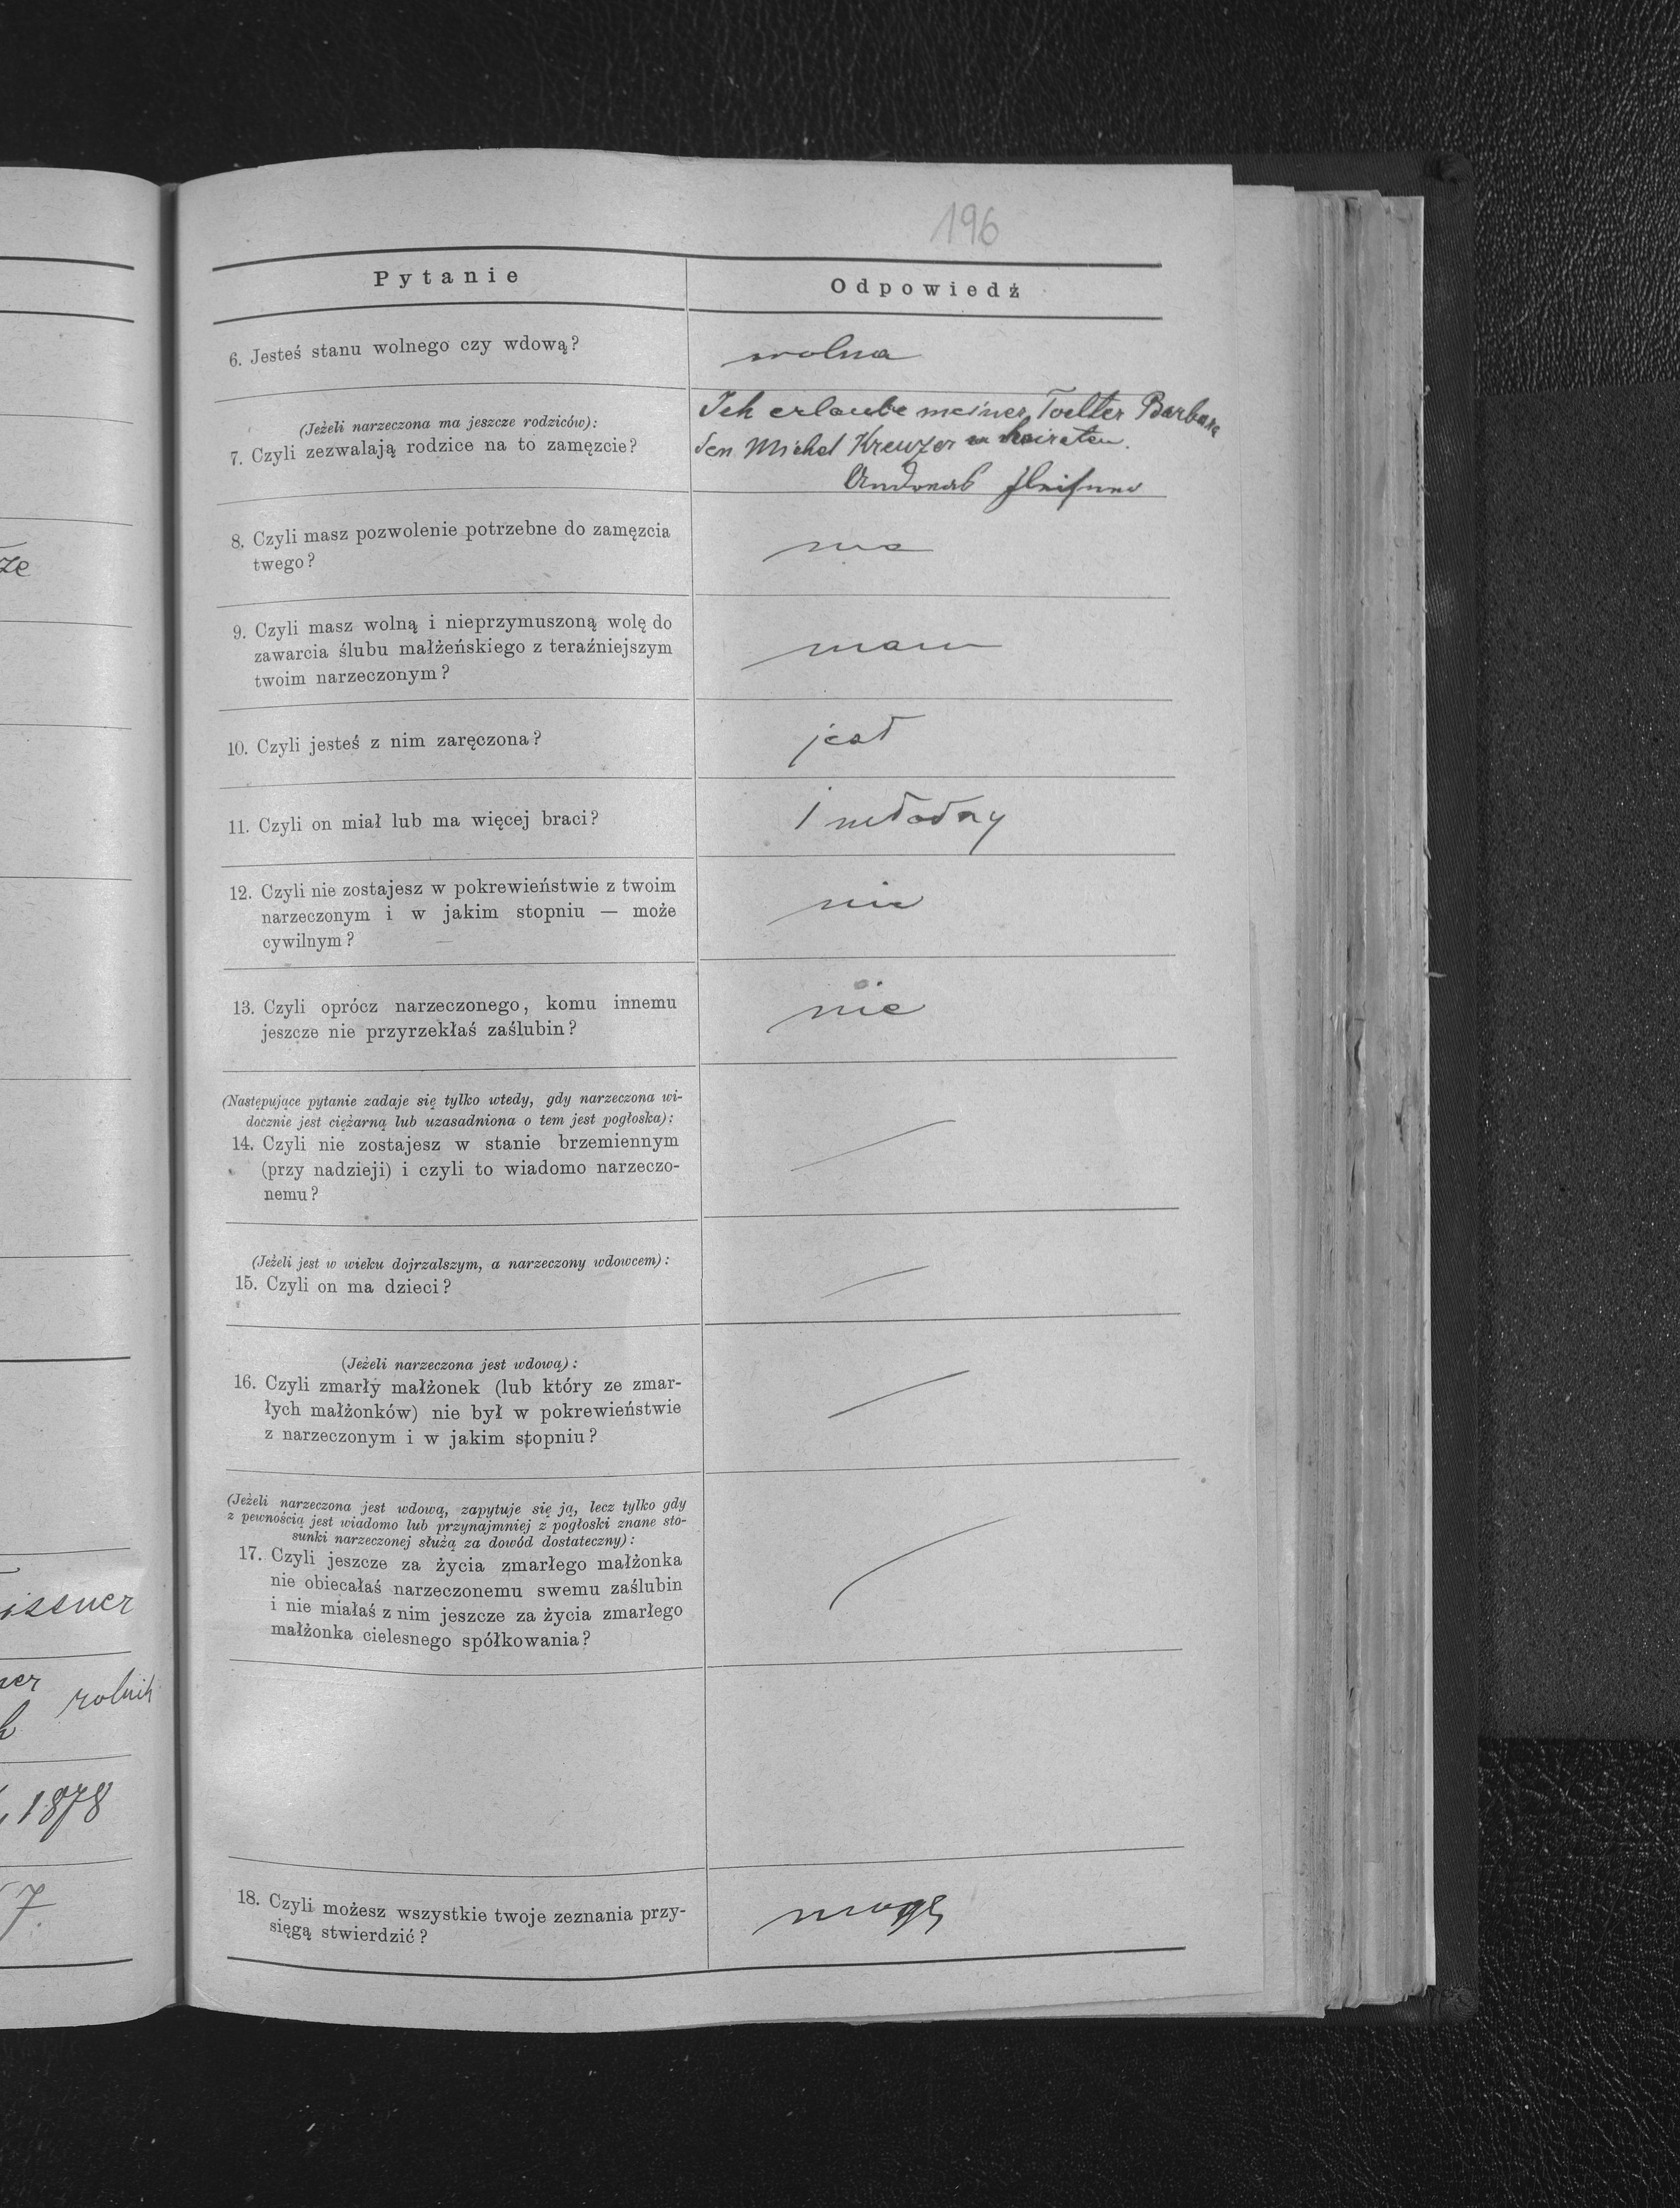 196
Pytanie
Odpowiedź
6. Jesteś stanu wolnego czy wdową?
wolna
(Jeżeli narzeczona ma jeszcze rodziców):
7. Czyli zezwalają rodzice na to zamęzcie?
Ich erlaube meiner Toelter Barbara
den Michel Kreuzer zu heiraten.
8. Czyli masz pozwolenie potrzebne do zamęzcia
twego?
ma
9. Czyli masz wolną i nieprzymuszoną wolę do
zawarcia ślubu małżeńskiego z teraźniejszym
twoim narzeczonym?
mam
10. Czyli jesteś z nim zaręczona?
jest
11. Czyli on miał lub ma więcej braci?
1 młodszy
12. Czyli nie zostajesz w pokrewieństwie z twoim
narzeczonym i w jakim stopniu — może
cywilnym?
nie
13. Czyli oprócz narzeczonego, komu innemu
jeszcze nie przyrzekłaś zaślubin?
nie
(Następujące pytanie zadaje się tylko wtedy, gdy narzeczona wi-
docznie jest ciężarną lub uzasadniona o tem jest pogłoska):
14. Czyli nie zostajesz w stanie brzemiennym
(przy nadzieji) i czyli to wiadomo narzeczo-
nemu?
(Jeżeli jest w wieku dojrzalszym, a narzeczony wdowcem):
15. Czyli on ma dzieci?
(Jeżeli narzeczona jest wdową):
16. Czyli zmarły małżonek (lub który ze zmar-
łych małżonków) nie był w pokrewieństwie
z narzeczonym i w jakim stopniu?
(Jeżeli narzeczona jest wdową, zapytuje się ją, lecz tylko gdy
z pewnością jest wiadomo lub przynajmniej z pogłoski znane sto-
sunki narzeczonej służą za dowód dostateczny):
17. Czyli jeszcze za życia zmarłego małżonka
nie obiecałaś narzeczonemu swemu zaślubin
i nie miałaś z nim jeszcze za życia zmarłego
małżonka cielesnego spółkowania?
18. Czyli możesz wszystkie twoje zeznania przy-
sięgą stwierdzić?
mogę
rolnik
1878
7.